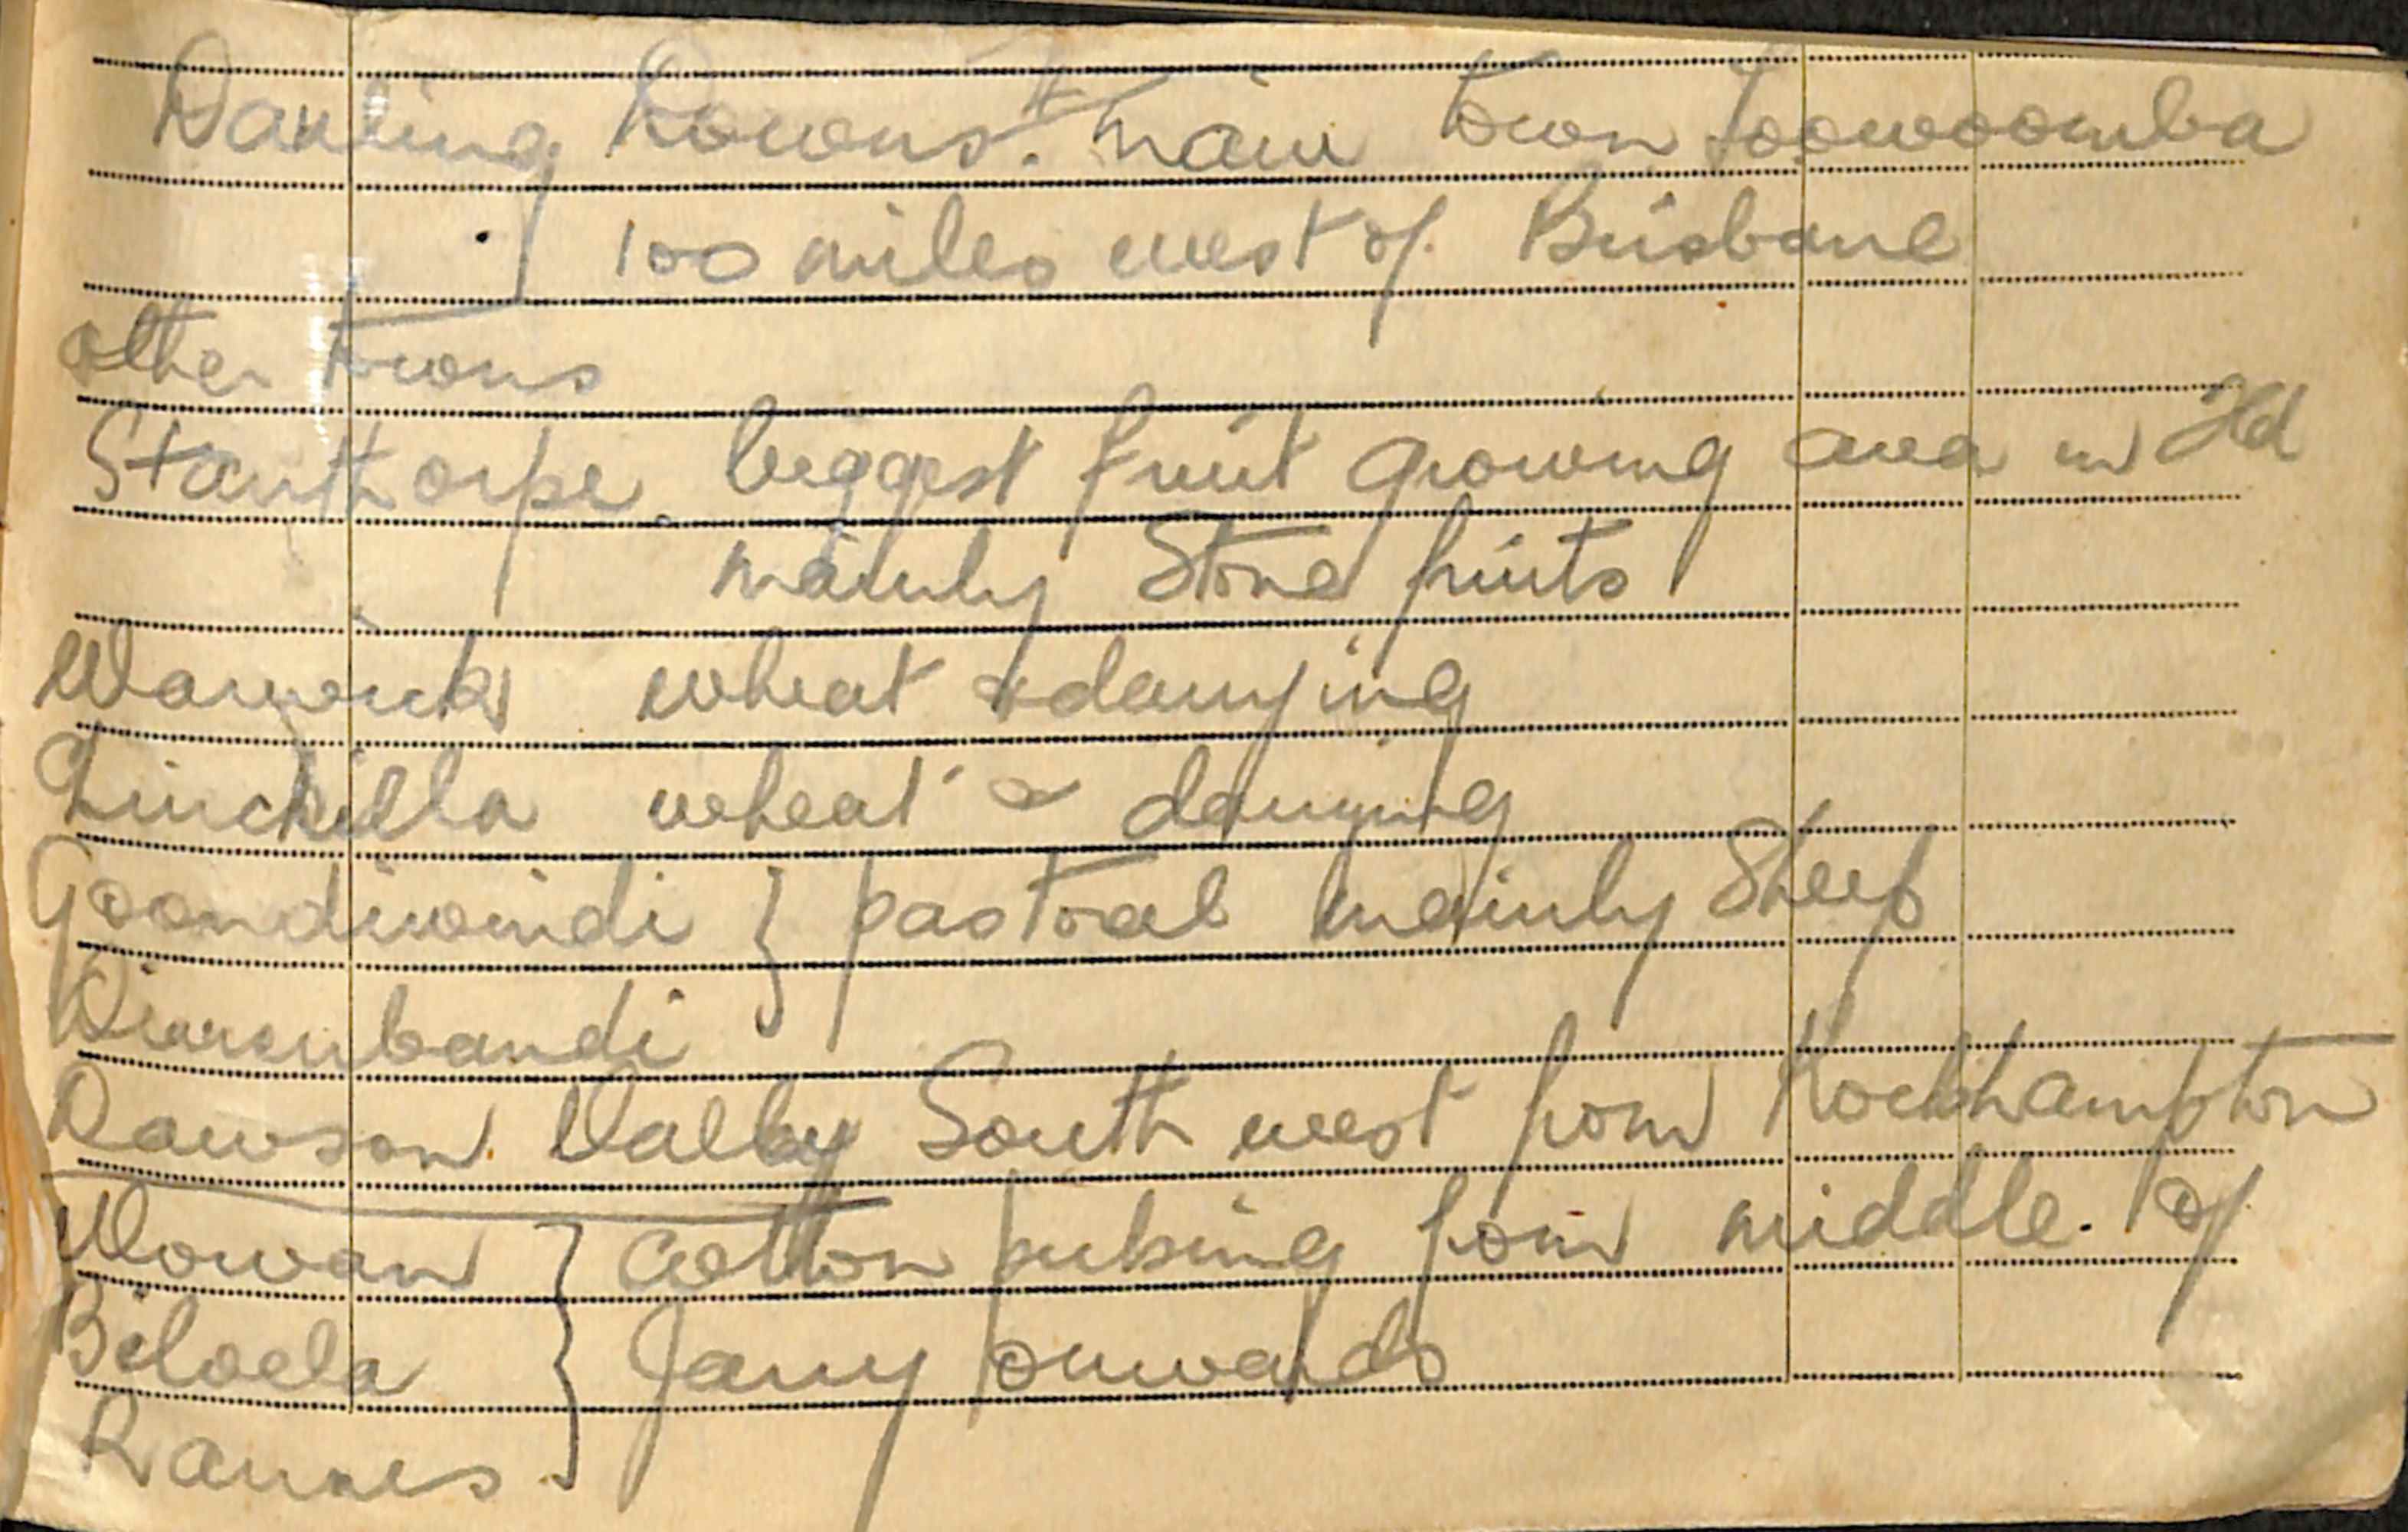 Darling Downs. Main town Toowoomba
100 miles west of Brisbane
other towns
Stanthorpe. biggest fruit growing area in Qld
mainly Stone fruits
Warwick wheat & dairying
Chinchilla wheat & dairying
Goondiwindi } pastoral mainly Sheep
Dirranbandi
Dawson Valley South west from Rockhampton
Wowan } Cotton picking from middle of
Biloela } Jany onwards
Rannes